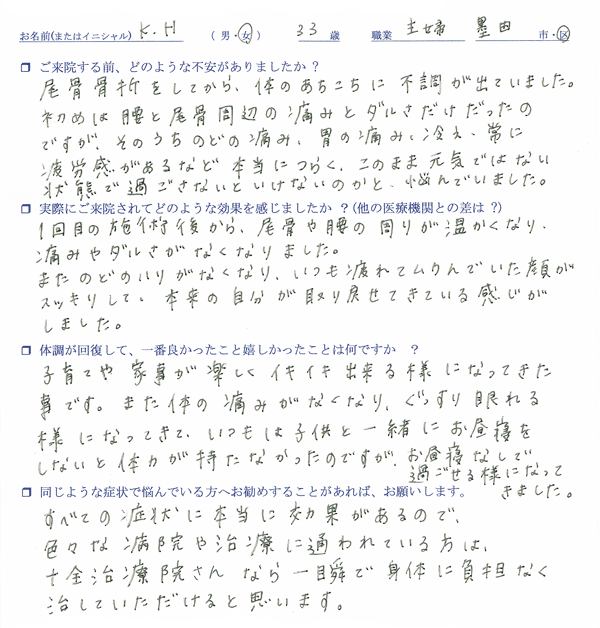 お名前(またはイニシャル) K.H (男・女) 33 歳 職業 主婦 墨田 市・区
❒ ご来院する前、どのような不安がありましたか？
尾骨骨折をしてから、体のあちこちに不調が出ていました。
初めは腰と尾骨周辺の痛みとダルさだけだったの
ですが、そのうちのどの痛み、胃の痛み、冷え、常に
疲労感があるなど本当につらく、このまま元気ではない
状態で過ごさないといけないのかと、悩んでいました。
❒ 実際にご来院されてどのような効果を感じましたか？(他の医療機関との差は？)
1回目の施術後から、尾骨や腰の周りが温かくなり、
痛みやダルさがなくなりました。
またのどのハリがなくなり、いつも疲れてムクんでいた顔が
スッキリして、本来の自分が取り戻せてきている感じが
しました。
❒ 体調が回復して、一番良かったこと嬉しかったことは何ですか　？
子育てや家事が楽しくイキイキ出来る様になってきた
事です。また体の痛みがなくなり、ぐっすり眠れる
様になってきて、いつもは子供と一緒にお昼寝を
しないと体力が持たなかったのですが、お昼寝なしで
過ごせる様になって
きました。
❒ 同じような症状で悩んでいる方へお勧めすることがあれば、お願いします。
すべての症状に本当に効果があるので、
色々な病院や治療に通われている方は、
十全治療院さんなら一瞬で身体に負担なく
治していただけると思います。